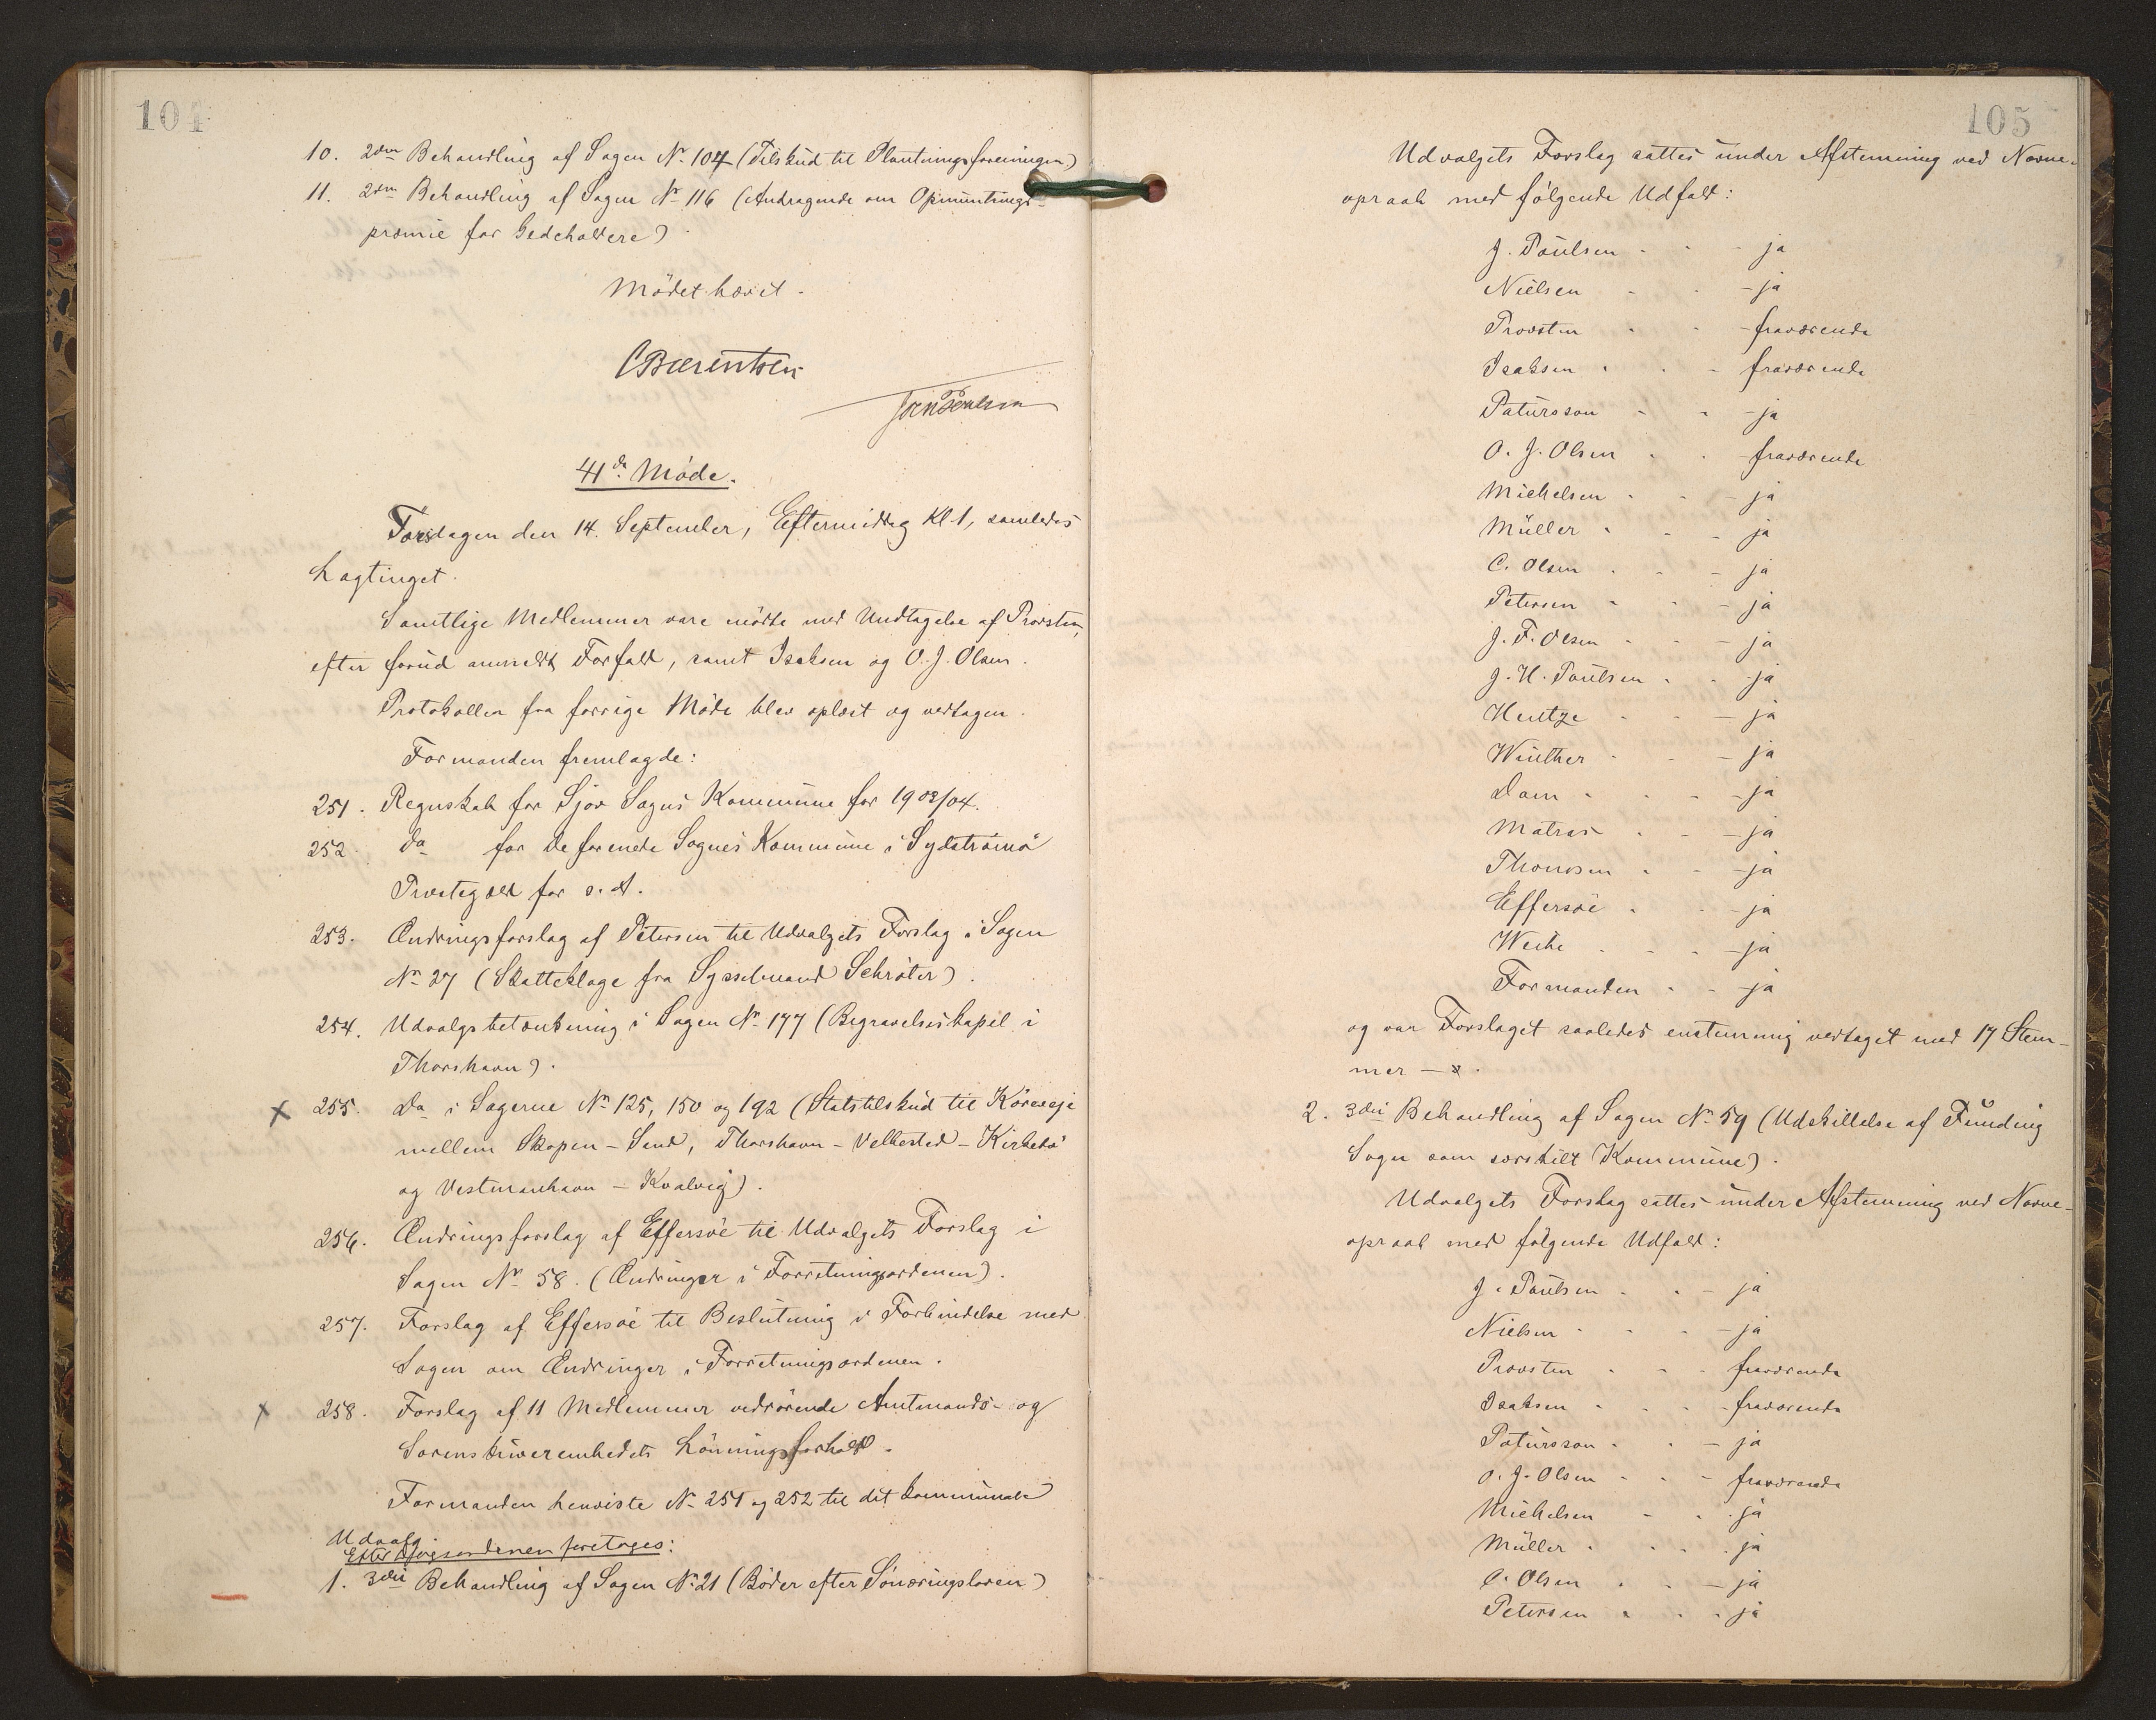 104
10. 2den Behandling af Sagen No 104 (Tilskud til Plantningsforeningen)
11. 2den Behandling af Sagen No 116 (Andragende om Opmuntrings-
præmie for Gedeholdere)
Mödet hævet.
C Bærentsen
Joen Poulsen
41de Möde.
Torsdagen den 14. September, Eftermiddag Kl. 1, samledes
Lagtinget.
Samtlige Medlemmer vare mödte med Undtagelse af Provsten,
efter forud anmeldt Forfald, samt Isaksen og O. J. Olsen.
Protokollen fra forrige Möde blev oplæst og vedtagen.
Formanden fremlagde:
251. Regnskab for Sjov Sogns Kommune for 1903/04.
252. do for de forenede Sognes Kommune i Sydströmö
Præstegæld for s. A.
253. Ændringsforslag af Petersen til Udvalgets Forslag i Sagen
No 27 (Skatteklage fra Sysselmand Schröter).
254. Udvalgsbetænkning i Sagen No 177 (Begravelseskapel i
Thorshavn).
x 255. do i Sagerne No 125, 150 og 192 (Statstilskud til Köreveje
mellem Skopen – Sand, Thorshavn – Velbestad – Kirkebö
og Vestmanhavn – Kvalvig).
256. Ændringsforslag af Effersöe til Udvalgets Forslag i
Sagen No 58. (Ændringer i Forretningsordenen).
257. Forslag af Effersöe til Beslutning i Forbindelse med
Sagen om Ændringer i Forretningsordenen.
x 258. Forslag af 11 Medlemmer vedrörende Amtmands- og
Sorenskriverembedets Lönningsforhold.
Formanden henviste No 251 og 252 til det kommunale
Udvalg.
Efter Dagsordenen foretoges:
1. 3die Behandling af Sagen No 21 (Böder efter Sönæringsloven)
105
Udvalgets Forslag sattes under Afstemning ved Navne-
opraab med fölgende Udfald:
J. Paulsen - - - ja
Nielsen - - - ja
Provsten - - - fraværende
Isaksen - - - fraværende
Patursson - - - ja
O. J. Olsen - - - fraværende
Michelsen - - - ja
Müller - - - ja
C. Olsen - - - ja
Petersen - - - ja
J. F. Olsen - - - ja
J. H. Paulsen - - - ja
Hentze - - - ja
Winther - - - ja
Dam - - - ja
Matras - - - ja
Thomsen - - - ja
Effersöe - - - ja
Weihe - - - ja
Formanden - - - ja
og var Forslaget saaledes enstemmig vedtaget med 17 Stem-
mer —.
2. 3die Behandling af Sagen No 59 (Udskillelse af Funding
Sogn som særskilt Kommune).
Udvalgets Forslag sattes under Afstemning ved Navne-
opraab med fölgende Udfald:
J. Paulsen - - - ja
Nielsen - - - ja
Provsten - - - fraværende
Isaksen - - - fraværende
Patursson - - - ja
O. J. Olsen - - - fraværende
Michelsen - - - ja
Müller - - - ja
C. Olsen - - - ja
Petersen - - - ja